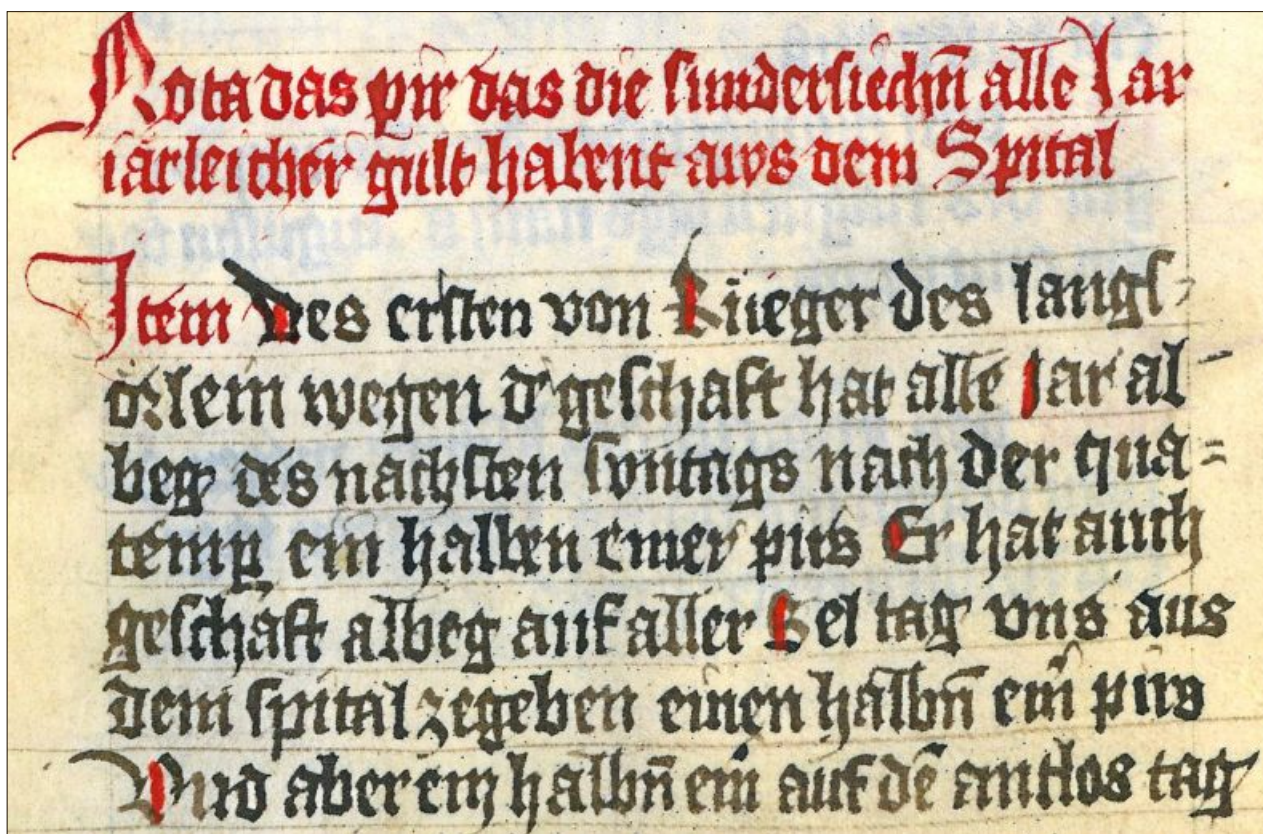 Nota das pir das die sundersiechn̄ alle Jar
iarleicher gült habent aws dem Spital
Item Des ersten von Rüeger des langs-
dӕlein wegen d' geschaft hat alle Jar al-
beg des nachsten suntags nach der qua=
temp̱ ein halben emer pirs Er hat auch
geschaft albeg auf aller Sel tag vns aus
dem spital zegeben einen halbn̄ em̄ pirs
Vnd aber ein halbn̄ em̄ auf dē antlos tag